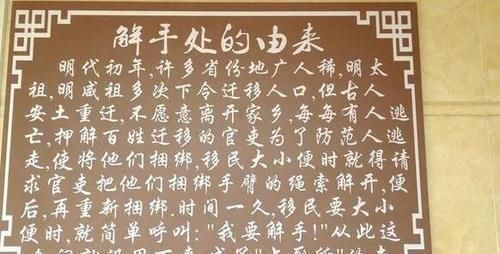 解手处的由来
明代初年,许多省份地广人稀,明太
祖,明成祖多次下令迁移人口,但古人
安土重迁,不愿意离开家乡,每每有人逃
亡,押解百姓迁移的官吏为了防范人逃
走,使将他们捆绑,移民大小便时就得请
求官吏把他们捆绑手臂的绳索解开,便
后,再重新捆绑.时间一久,移民要大小
便时,就简单呼叫:"我要解手!"从此这